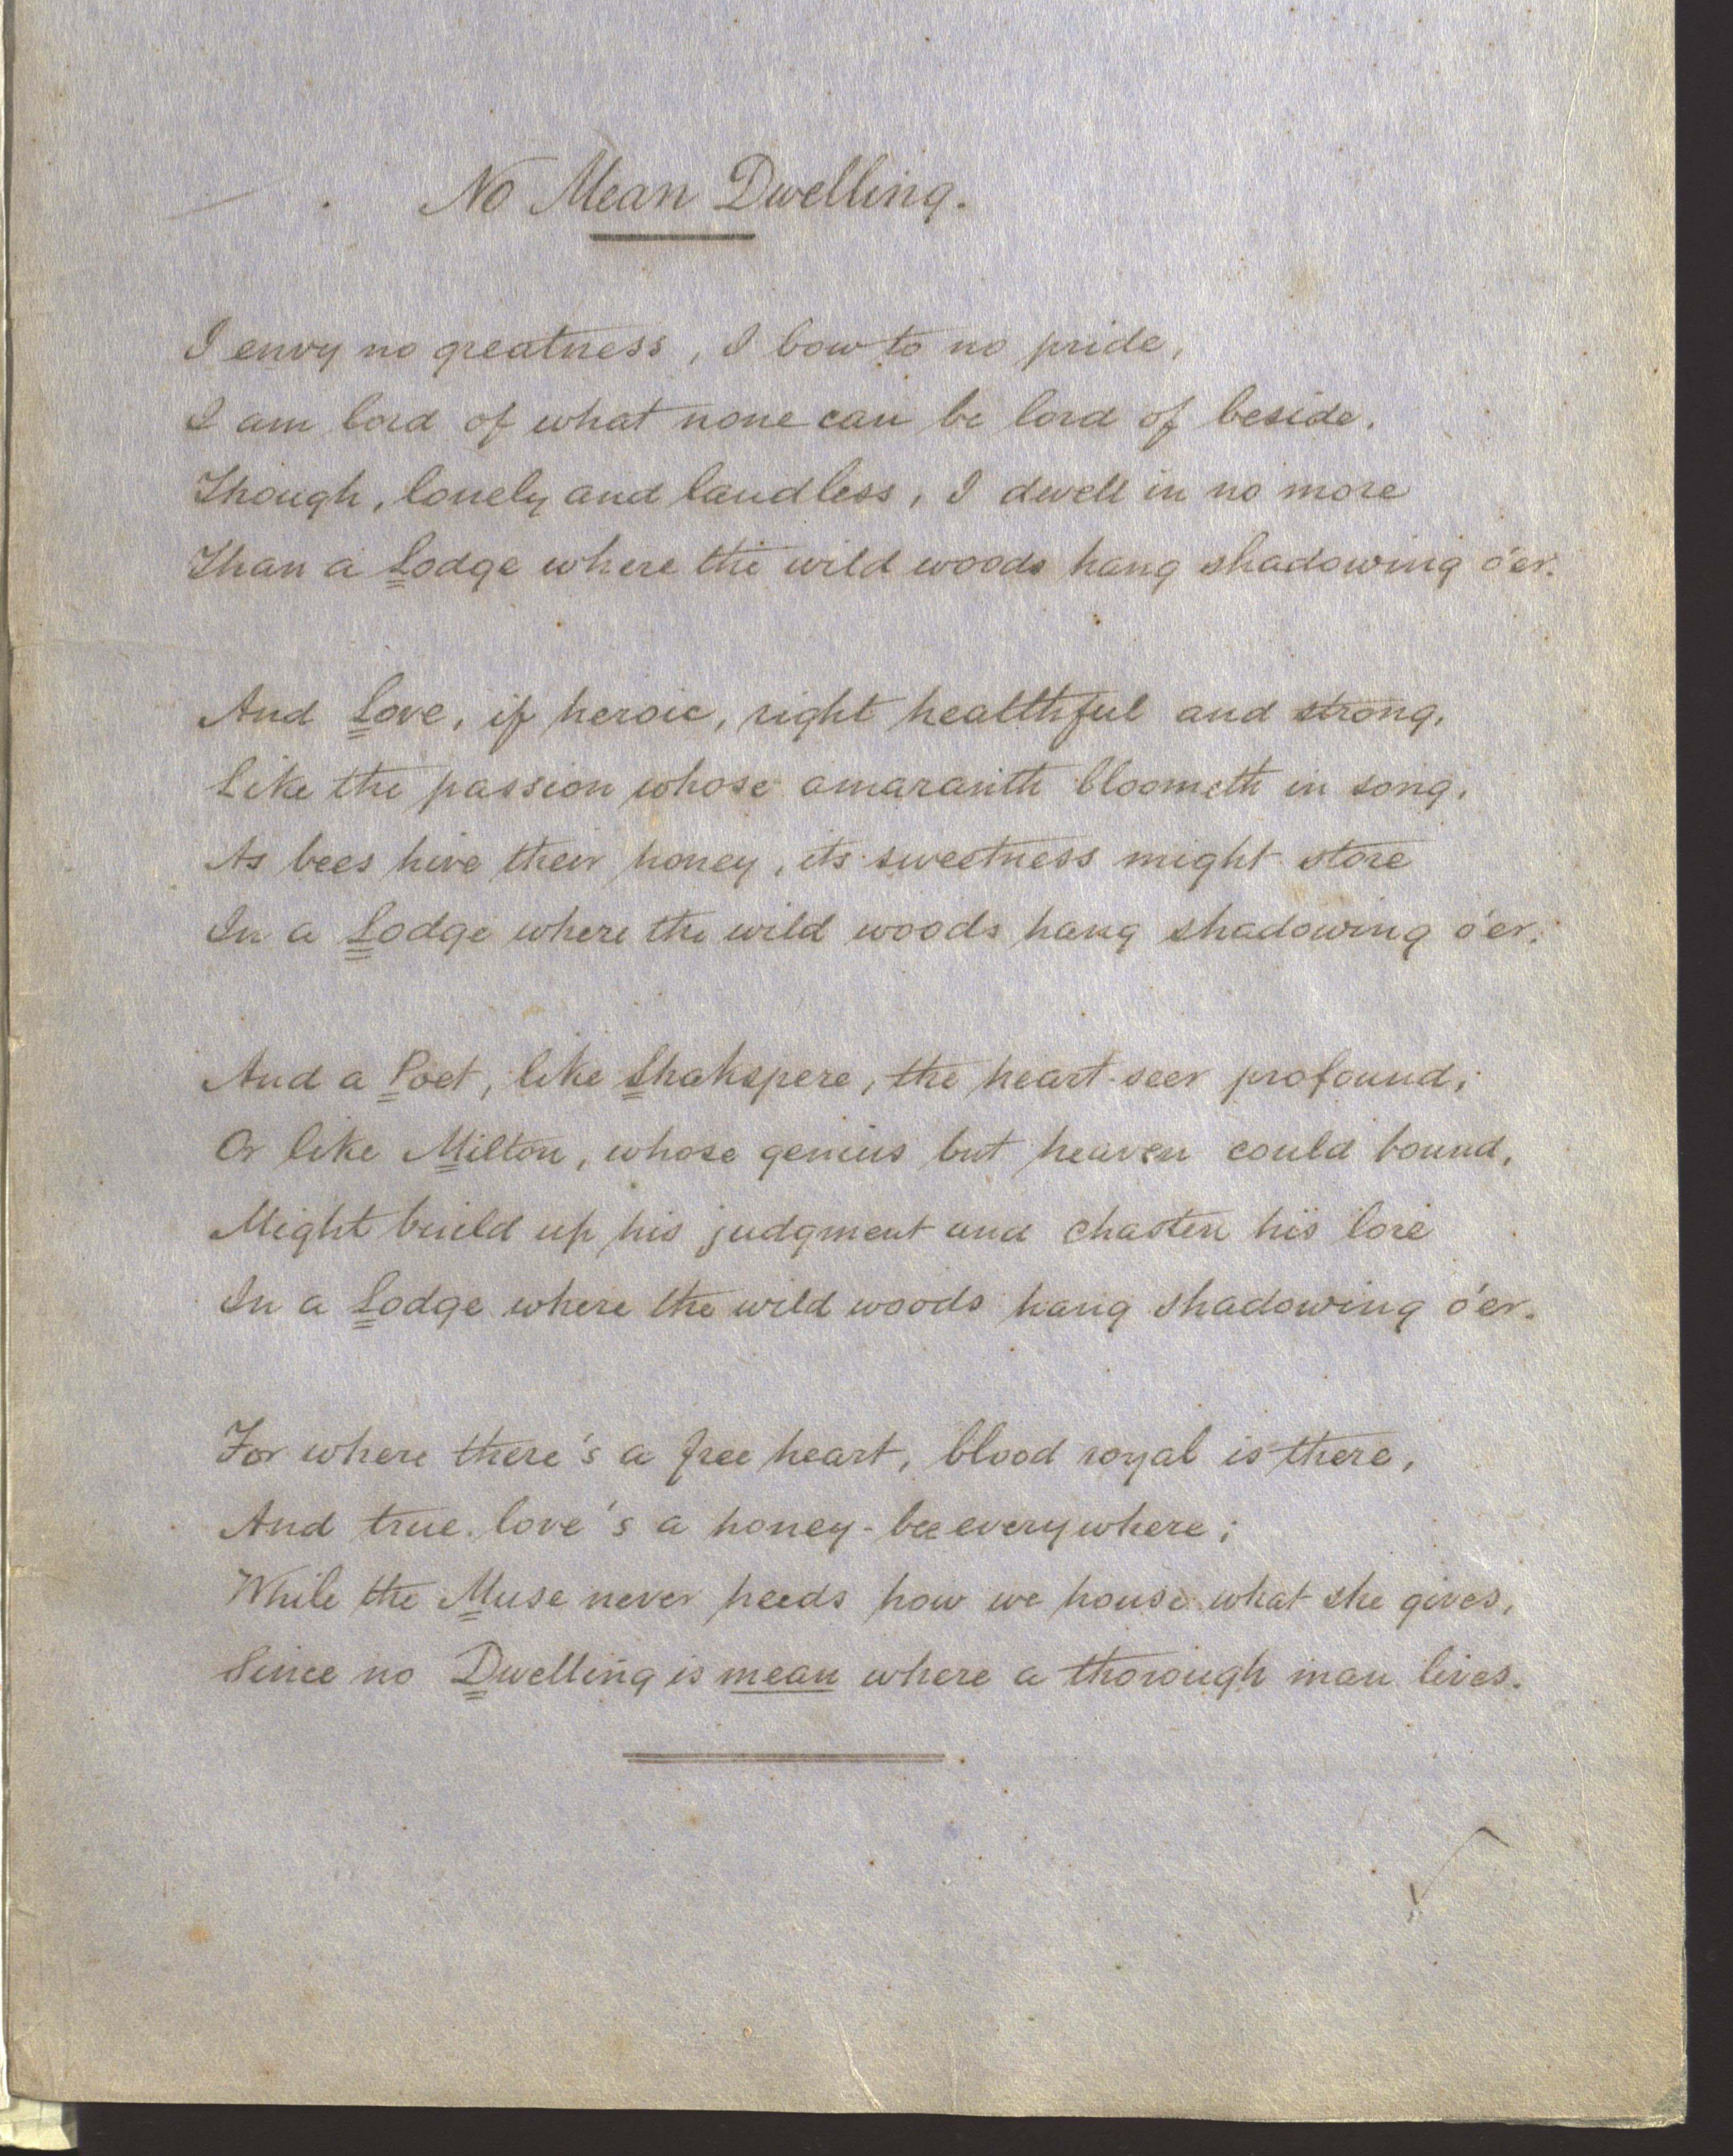 No Mean Dwelling.
I envy no greatness, I bow to no pride,
I am lord of what none can be lord of beside.
Though, lonely and landless, I dwell in no more
Than a Lodge where the wild woods hang shadowing o'er.
And Love, if heroic, right healthful and strong,
Like the passion whose amaranth bloometh in song,
As bees hive their honey, its sweetness might store
In a Lodge where the wild woods hang shadowing o'er.
And a Poet, like Shakspere, the heart-seer profound,
Or like Milton, whose genius but heaven could bound,
Might build up his judgment and chasten his lore
In a Lodge where the wild woods hang shadowing o'er.
For where there's a free heart, blood royal is there,
And true love's a honey-bee everywhere;
While the Muse never heeds how we house what she gives,
Since no Dwelling is mean where a thorough man lives.